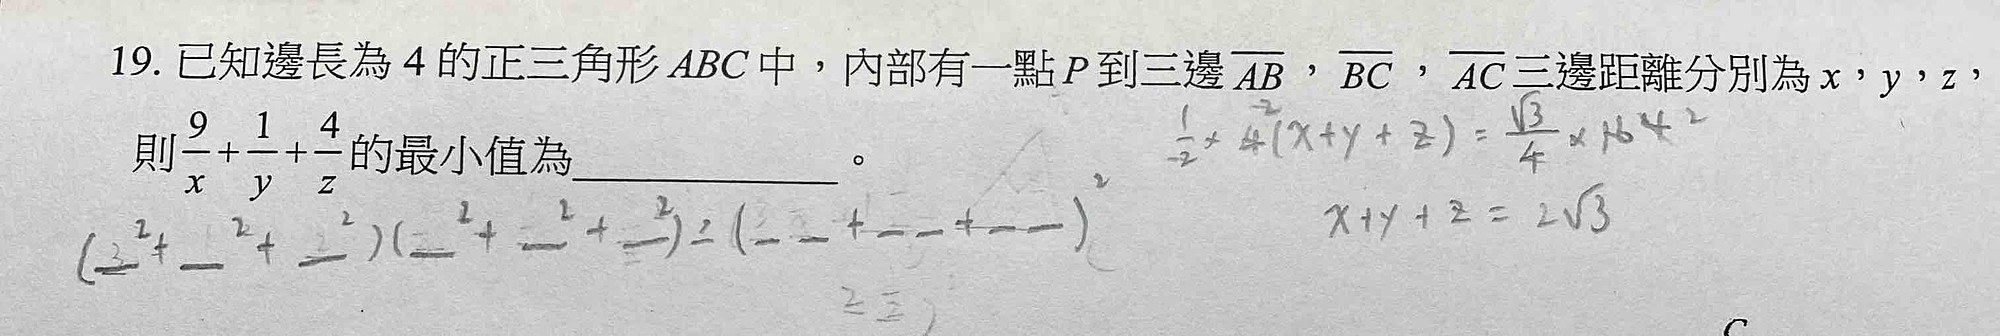 19. 已知邊長為 4 的正三角形 ABC 中，內部有一點 P 到三邊 AB，BC，AC 三邊距離分別為 x，y，z，
則 9/x + 1/y + 4/z 的最小值為__________。
1/2 × 4 (x+y+z) = √3/4 × 4²
x+y+z = 2√3
(_² + _² + _²)(_² + _² + _²) ≥ (_ _ + _ _ + _ _)²